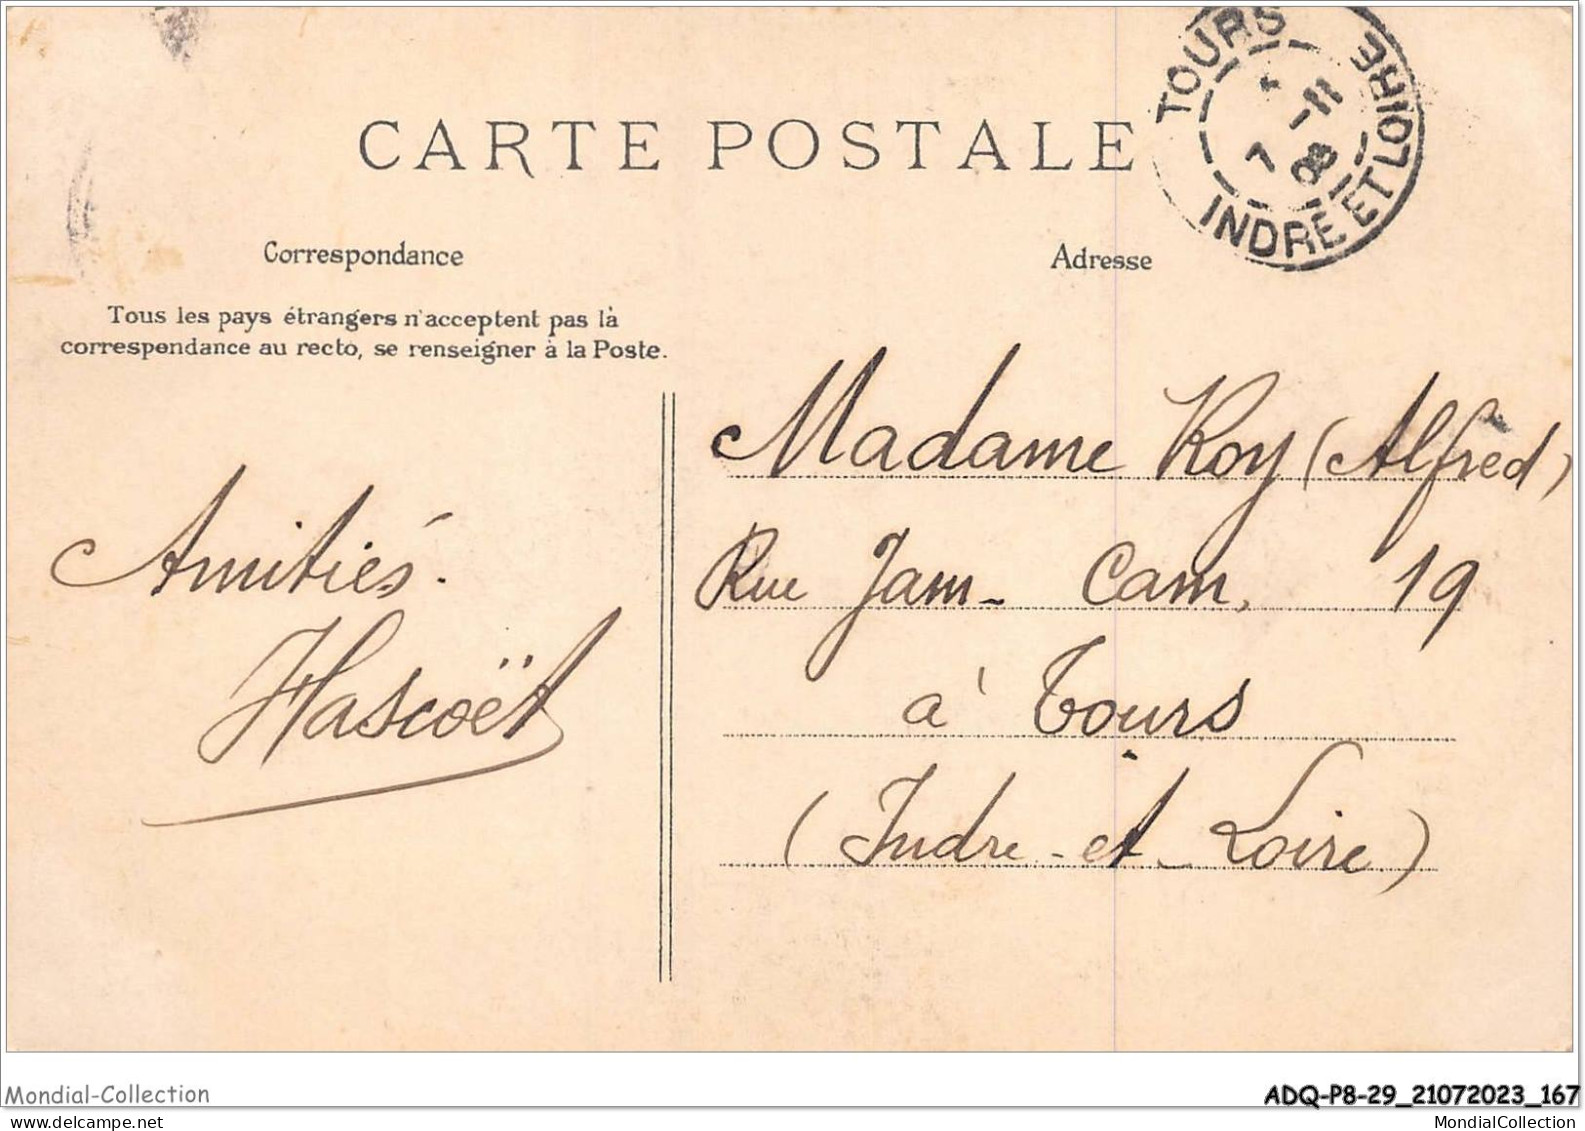 CARTE POSTALE
TOURS
INDRE ET LOIRE
7 -11
08
Correspondance
Adresse
Tous les pays étrangers n'acceptent pas la
correspondance au recto, se renseigner à la Poste.
Amitiés.
Hascoët
Madame Roy (Alfred)
Rue Jam- Cam, 19
à Tours
(Indre-et-Loire)
Mondial-Collection
ADQ-P8-29_21072023_167
www.delcampe.net
MondialCollection